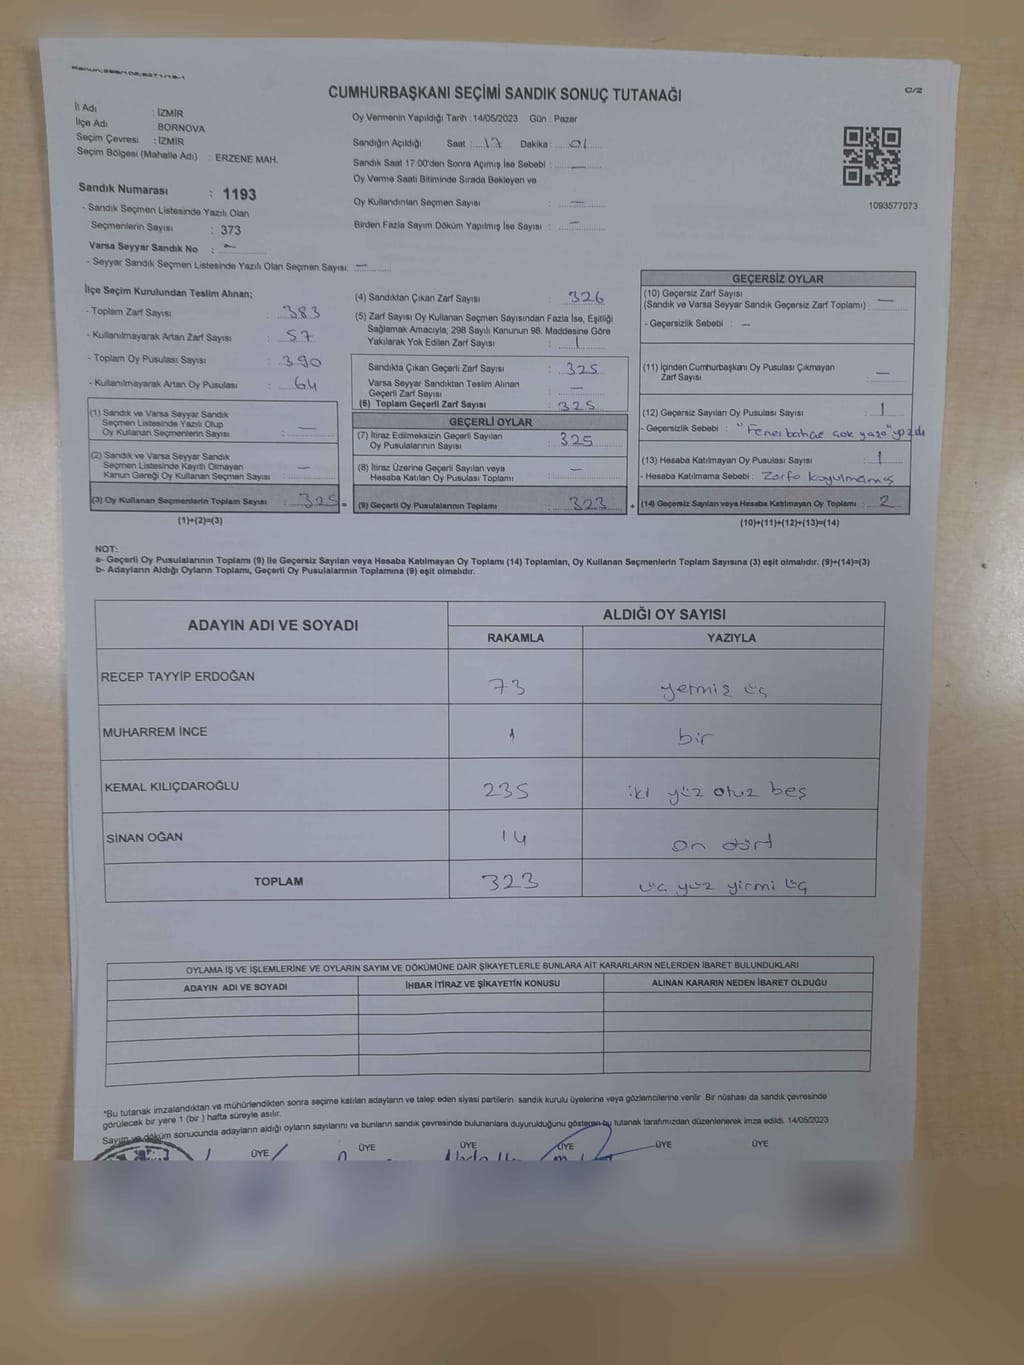 Kanun:298/106;6271/19-1
C/2
CUMHURBAŞKANI SEÇİMİ SANDIK SONUÇ TUTANAĞI
İl Adı : İZMİR
İlçe Adı : BORNOVA
Seçim Çevresi : İZMİR
Seçim Bölgesi (Mahalle Adı) : ERZENE MAH.
Sandık Numarası : 1193
- Sandık Seçmen Listesinde Yazılı Olan
Seçmenlerin Sayısı : 373
Varsa Seyyar Sandık No : —
- Seyyar Sandık Seçmen Listesinde Yazılı Olan Seçmen Sayısı: —
Oy Vermenin Yapıldığı Tarih : 14/05/2023 Gün : Pazar
Sandığın Açıldığı Saat : 17 Dakika : 01
Sandık Saat 17:00'den Sonra Açımış İse Sebebi : —
Oy Verme Saati Bitiminde Sırada Bekleyen ve
Oy Kullandırılan Seçmen Sayısı : —
Birden Fazla Sayım Döküm Yapılmış İse Sayısı : —
1093577073
İlçe Seçim Kurulundan Teslim Alınan;
- Toplam Zarf Sayısı : 383
- Kullanılmayarak Artan Zarf Sayısı : 57
- Toplam Oy Pusulası Sayısı : 390
- Kullanılmayarak Artan Oy Pusulası : 64
(1) Sandık ve Varsa Seyyar Sandık
Seçmen Listesinde Yazılı Olup
Oy Kullanan Seçmenlerin Sayısı : —
(2) Sandık ve Varsa Seyyar Sandık
Seçmen Listesinde Kayıtlı Olmayan
Kanun Gereği Oy Kullanan Seçmen Sayısı : —
(3) Oy Kullanan Seçmenlerin Toplam Sayısı : 325 =
(1)+(2)=(3)
(4) Sandıktan Çıkan Zarf Sayısı : 326
(5) Zarf Sayısı Oy Kullanan Seçmen Sayısından Fazla İse, Eşitliği
Sağlamak Amacıyla; 298 Sayılı Kanunun 98. Maddesine Göre
Yakılarak Yok Edilen Zarf Sayısı : 1
Sandıkta Çıkan Geçerli Zarf Sayısı : 325
Varsa Seyyar Sandıktan Teslim Alınan
Geçerli Zarf Sayısı : —
(6) Toplam Geçerli Zarf Sayısı : 325
GEÇERLİ OYLAR
(7) İtiraz Edilmeksizin Geçerli Sayılan
Oy Pusulalarının Sayısı : 325
(8) İtiraz Üzerine Geçerli Sayılan veya
Hesaba Katılan Oy Pusulası Toplamı : —
(9) Geçerli Oy Pusulalarının Toplamı : 323 +
GEÇERSİZ OYLAR
(10) Geçersiz Zarf Sayısı
(Sandık ve Varsa Seyyar Sandık Geçersiz Zarf Toplamı) : —
- Geçersizlik Sebebi : —
(11) İçinden Cumhurbaşkanı Oy Pusulası Çıkmayan
Zarf Sayısı : —
(12) Geçersiz Sayılan Oy Pusulası Sayısı : 1
- Geçersizlik Sebebi : "Fenerbahçe çok yaşa" yazdı
(13) Hesaba Katılmayan Oy Pusulası Sayısı : 1
- Hesaba Katılmama Sebebi : Zarfa koyulmamış
(14) Geçersiz Sayılan veya Hesaba Katılmayan Oy Toplamı : 2
(10)+(11)+(12)+(13)=(14)
NOT:
a- Geçerli Oy Pusulalarının Toplamı (9) ile Geçersiz Sayılan veya Hesaba Katılmayan Oy Toplamı (14) Toplamları, Oy Kullanan Seçmenlerin Toplam Sayısına (3) eşit olmalıdır. (9)+(14)=(3)
b- Adayların Aldığı Oyların Toplamı, Geçerli Oy Pusulalarının Toplamına (9) eşit olmalıdır.
ADAYIN ADI VE SOYADI
ALDIĞI OY SAYISI
RAKAMLA YAZIYLA
RECEP TAYYİP ERDOĞAN 73 yetmiş üç
MUHARREM İNCE 1 bir
KEMAL KILIÇDAROĞLU 235 iki yüz otuz beş
SİNAN OĞAN 14 on dört
TOPLAM 323 üç yüz yirmi üç
OYLAMA İŞ VE İŞLEMLERİNE VE OYLARIN SAYIM VE DÖKÜMÜNE DAİR ŞİKAYETLERLE BUNLARA AİT KARARLARIN NELERDEN İBARET BULUNDUKLARI
ADAYIN ADI VE SOYADI İHBAR İTİRAZ VE ŞİKAYETİN KONUSU ALINAN KARARIN NEDEN İBARET OLDUĞU
*Bu tutanak imzalandıktan ve mühürlendikten sonra seçime katılan adayların ve talep eden siyasi partilerin sandık kurulu üyelerine veya gözlemcilerine verilir. Bir nüshası da sandık çevresinde
görülecek bir yere 1 (bir ) hafta süreyle asılır.
Sayım ve döküm sonucunda adayların aldığı oyların sayılarını ve bunların sandık çevresinde bulunanlara duyurulduğunu gösteren bu tutanak tarafımızdan düzenlenerek imza edildi. 14/05/2023
ÜYE ÜYE ÜYE ÜYE ÜYE ÜYE